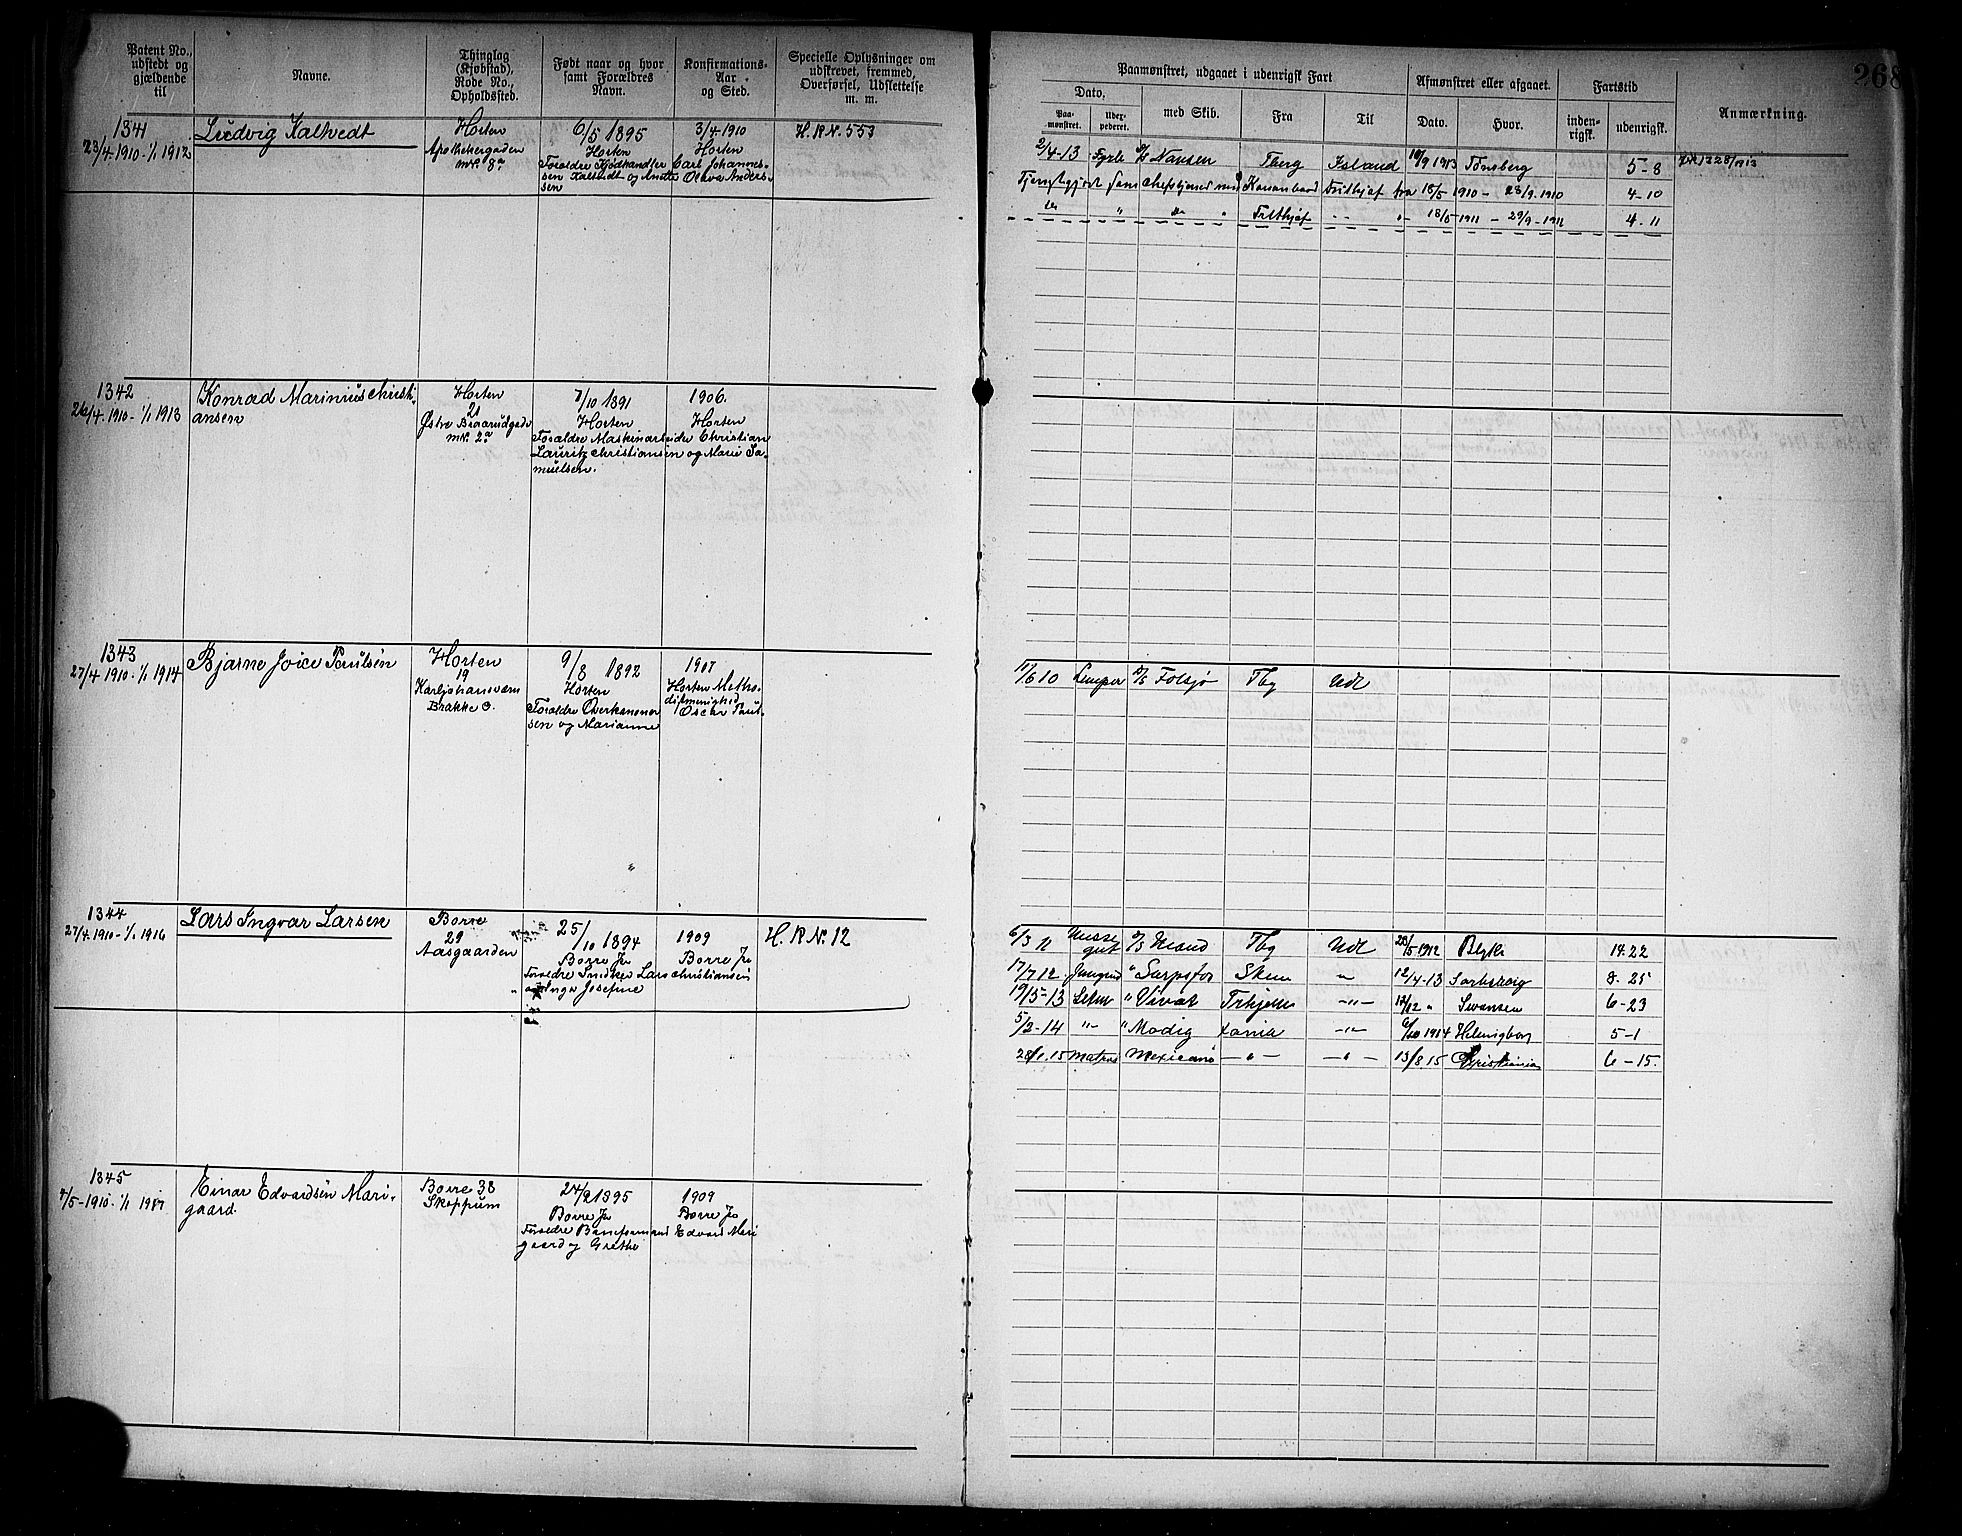 268
Patent No., udstedt og gjældende til
Navne.
Thinglag (Kjøbstad), Rode No., Opholdssted.
Født naar og hvor samt Forældres Navn.
Konfirmations- Aar og Sted.
Specielle Oplysninger om udskrevet, fremmed, Overførsel, Udslettelse m. m.
Paamønstret, udgaaet i udenrigsk Fart
Afmønstret eller afgaaet.
Fartstid
Anmærkning.
Dato.
Paa- mønstret.
med Skib.
Fra
Til
Dato.
Hvor.
inden- rigsk.
udenrigsk.
1341
23/4.1910-1/1 1912
Ludvig Kaltvedt
Horten
Apothekergaden
mN. 8a
6/5 1895
Horten
Forældre Kjødhandler Carl Johannes-
sen Kaltvedt og Anette Olava Anders-
sen
3/4.1910
Horten
H. R N. 553
2/4-13 Nansen Tberg Island 10/9 1913 Tønsberg 5-8
Frithjof fra 18/5 1910 - 28/9.1910 4-10
Do " Do " Frithjof 18/5 1911 - 29/9-1911 4.11
1342
26/4.1910-1/1 1913
Konrad Marinius Christi-
ansen
Horten
21
Østre Braarudgade
mN. 2a
7/10 1891
Horten
Forældre Maskinarbeider Christian
Lauritz Christiansen og Marie Sa-
muelsen.
1906.
Horten
1343
27/4.1910.1/1 1914
Bjarne Joice Paulsen
Horten
19
Karljohansværn
Brakke C.
9/8 1892
Horten
Forældre Overkanoner Oscar Paul-
sen og Marianne
1907
Horten Metho-
distmenighed
11/6 10 Lemper Folsjø Tbg Udl
1344
27/4.1910-1/1 1916
Lars Ingvar Larsen
Borre
29
Aasgaarden
25/10 1894
Borre Js
Forældre Snidker Lars Christiansen
og Inga Josefine
1909
Borre Js
H. R N. 12
6/3 12 Messe
gut Maud Tbg Udl 28/5 1912 Blyth 14.22
17/7 12 Jungmd " Sarpsfos Skien " 12/4-13 Sarpsborg 8.25
19/5-13 " Vivat -"- " Swansea 6-23
5/2-14 -"- " Modig -"- 1914 Helsingborg 5-1
28/1.15 Matros Mexicano -"- -"- 13/8.15 Christiania 6-15.
1345
4/5-1910.1/1 1917
Einar Edvardsen Mari-
gaard.
Borre 38
Skoppum
24/2 1895
Borre Js
Forældre Baneformand Edvard Mari
gaard og Grethe
1909
Borre Js